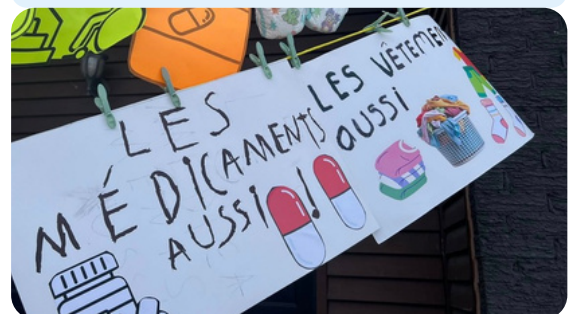 LES
MÉDICAMENTS
AUSSI !
LES VÊTEMEN
AUSSI